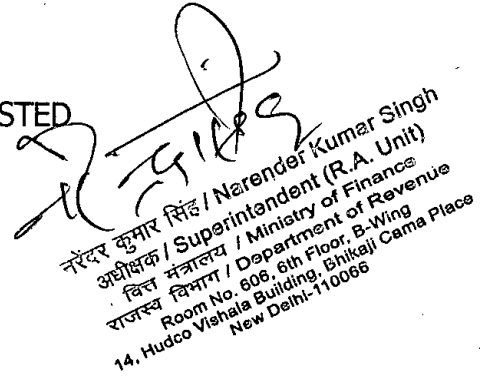 STED
नरेंद्र कुमार सिंह / Narender Kumar Singh
अधीक्षक / Superintendent (R.A. Unit)
वित्त मंत्रालय / Ministry of Finance
राजस्व विभाग / Department of Revenue
Room No. 606, 6th Floor, B-Wing
14, Hudco Vishala Building, Bhikaji Cama Place
New Delhi-110066